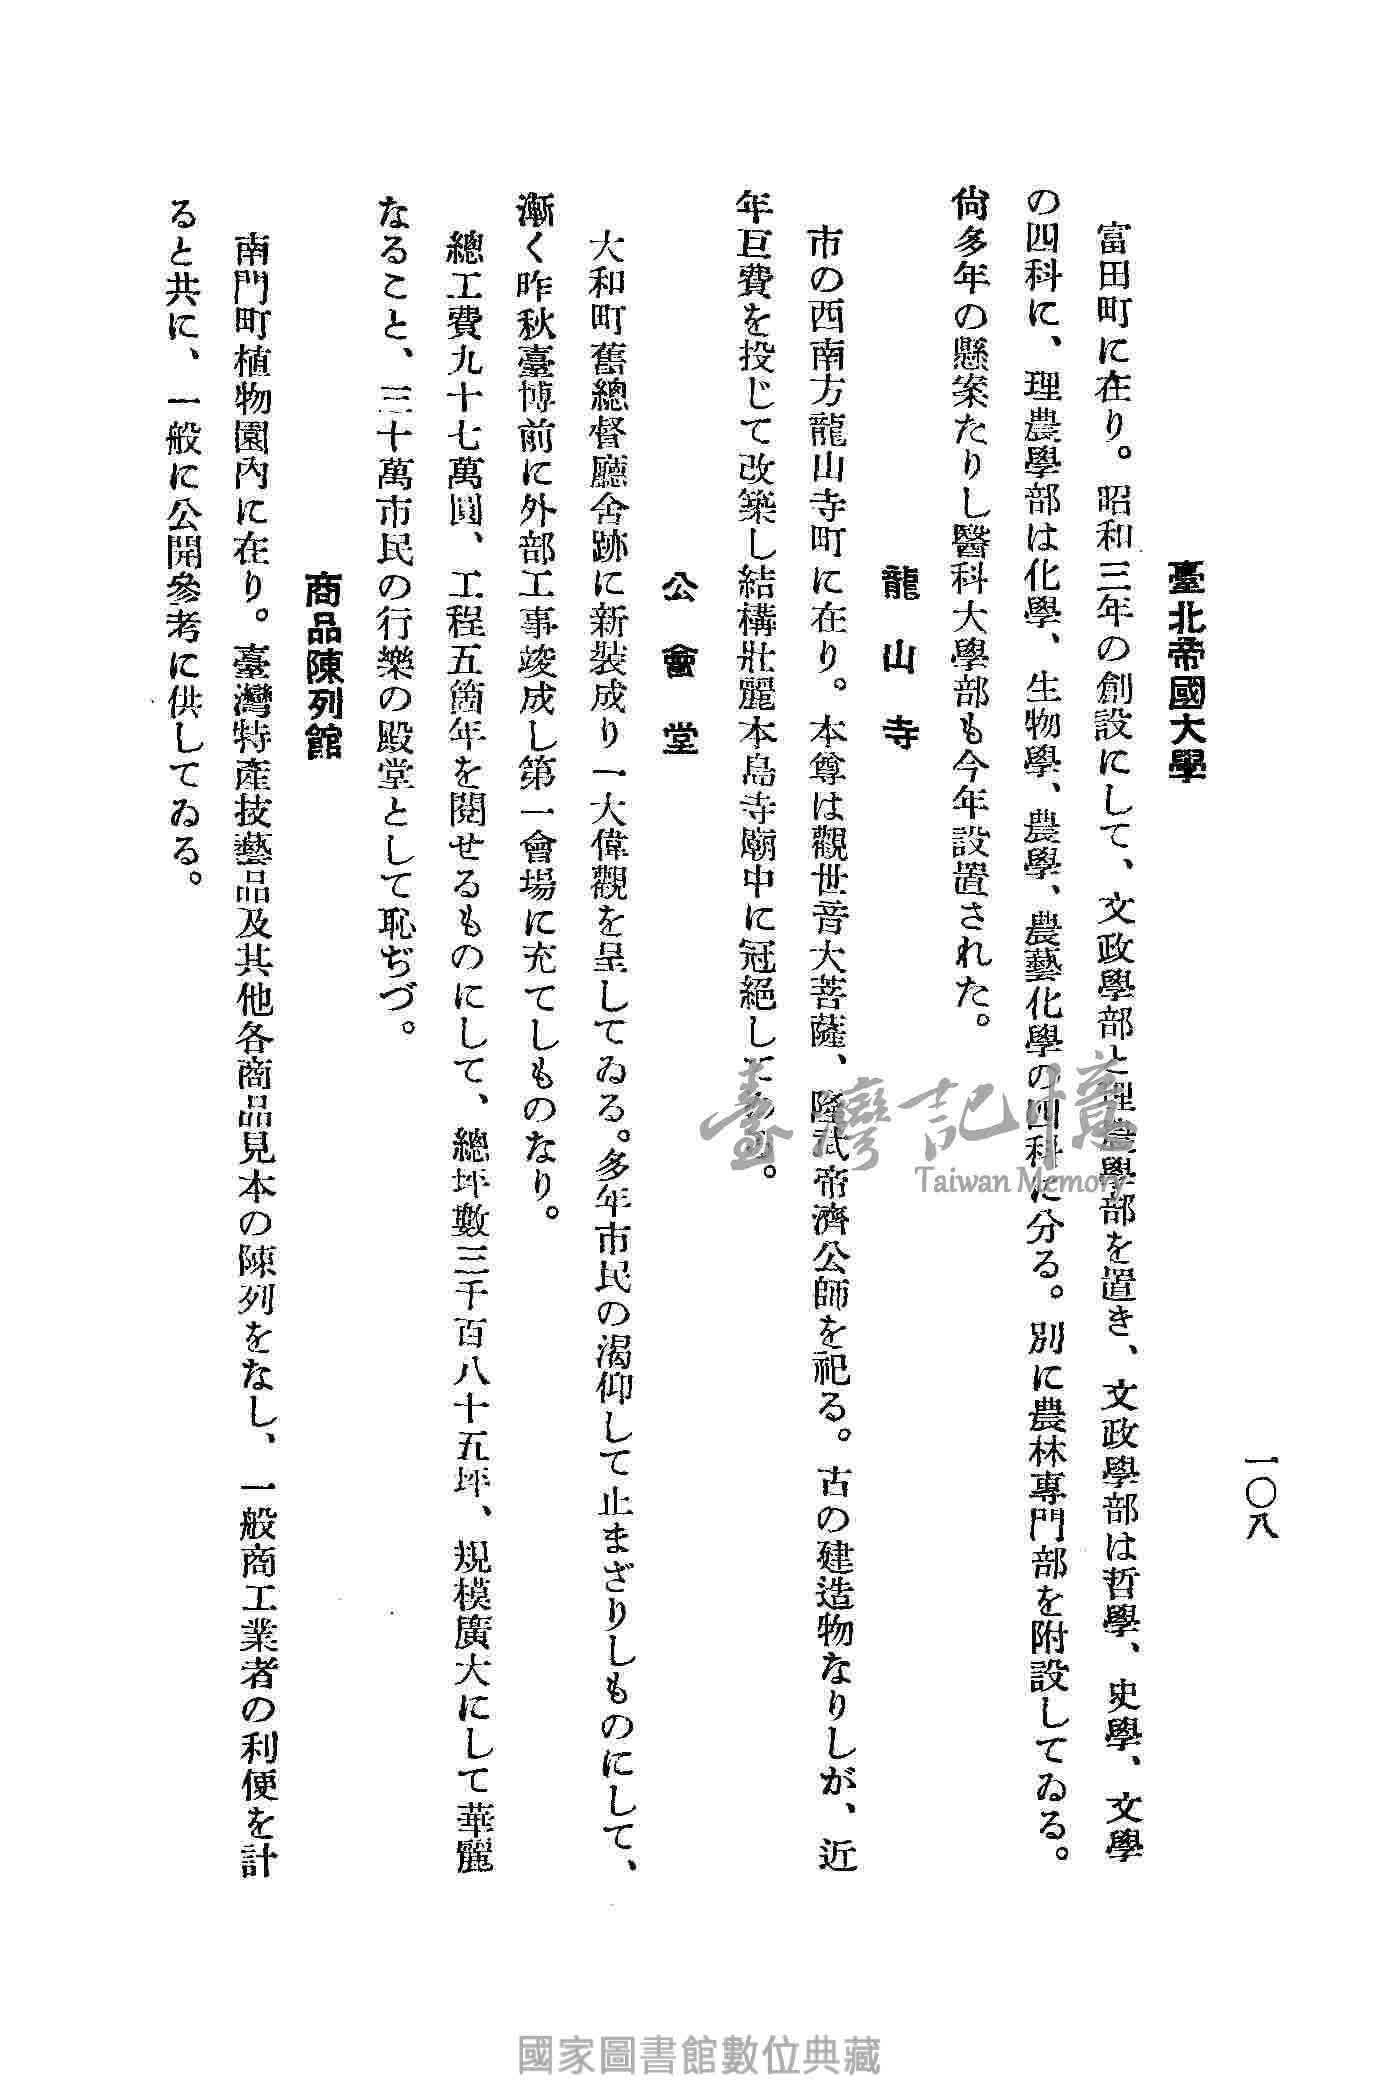 一〇八
臺北帝國大學
富田町に在り。昭和三年の創設にして、文政學部と理農學部を置き、文政學部は哲學、史學、文學
の四科に、理農學部は化學、生物學、農學、農藝化學の四科に分る。別に農林專門部を附設してゐる。
尙多年の懸案たりし醫科大學部も今年設置された。
龍山寺
市の西南方龍山寺町に在り。本尊は觀世音大菩薩、隆武帝濟公師を祀る。古の建造物なりしが、近
年巨費を投じて改築し結構壯麗本島寺廟中に冠絕してゐる。
公會堂
大和町舊總督廳舍跡に新裝成り一大偉觀を呈してゐる。多年市民の渴仰して止まざりしものにして、
漸く昨秋臺博前に外部工事竣成し第一會場に充てしものなり。
總工費九十七萬圓、工程五箇年を閱せるものにして、總坪數三千百八十五坪、規模廣大にして華麗
なること、三十萬市民の行樂の殿堂として恥ぢづ。
商品陳列館
南門町植物園內に在り。臺灣特產技藝品及其他各商品見本の陳列をなし、一般商工業者の利便を計
ると共に、一般に公開參考に供してゐる。
臺灣記憶
Taiwan Memory
國家圖書館數位典藏